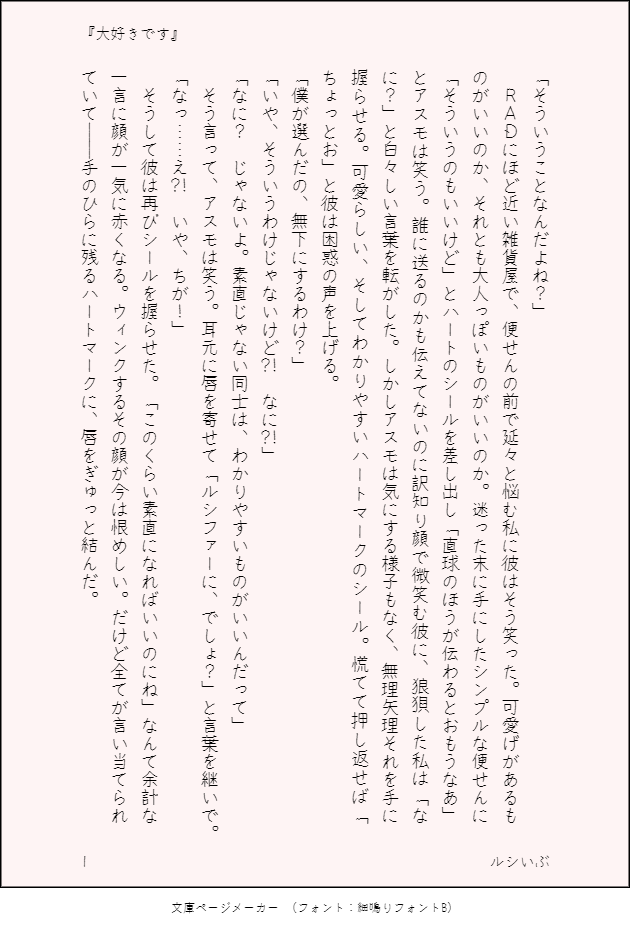 『大好きです』
「そういうことなんだよね？」
　ＲＡＤにほど近い雑貨屋で、便せんの前で延々と悩む私に彼はそう笑った。可愛げがあるも
のがいいのか、それとも大人っぽいものがいいのか。迷った末に手にしたシンプルな便せんに
「そういうのもいいけど」とハートのシールを差し出し「直球のほうが伝わるとおもうなあ」
とアスモは笑う。誰に送るのかも伝えてないのに訳知り顔で微笑む彼に、狼狽した私は「な
に？」と白々しい言葉を転がした。しかしアスモは気にする様子もなく、無理矢理それを手に
握らせる。可愛らしい、そしてわかりやすいハートマークのシール。慌てて押し返せば「
ちょっとお」と彼は困惑の声を上げる。
「僕が選んだの、無下にするわけ？」
「いや、そういうわけじゃないけど?!　なに?!」
「なに？　じゃないよ。素直じゃない同士は、わかりやすいものがいいんだって」
　そう言って、アスモは笑う。耳元に唇を寄せて「ルシファーに、でしょ？」と言葉を継いで。
「なっ……え?!　いや、ちが！」
　そうして彼は再びシールを握らせた。「このくらい素直になればいいのにね」なんて余計な
一言に顔が一気に赤くなる。ウィンクするその顔が今は恨めしい。だけど全てが言い当てられ
ていて――手のひらに残るハートマークに、唇をぎゅっと結んだ。
ルシいぶ
1
文庫ページメーカー　（フォント：細鳴りフォントB）